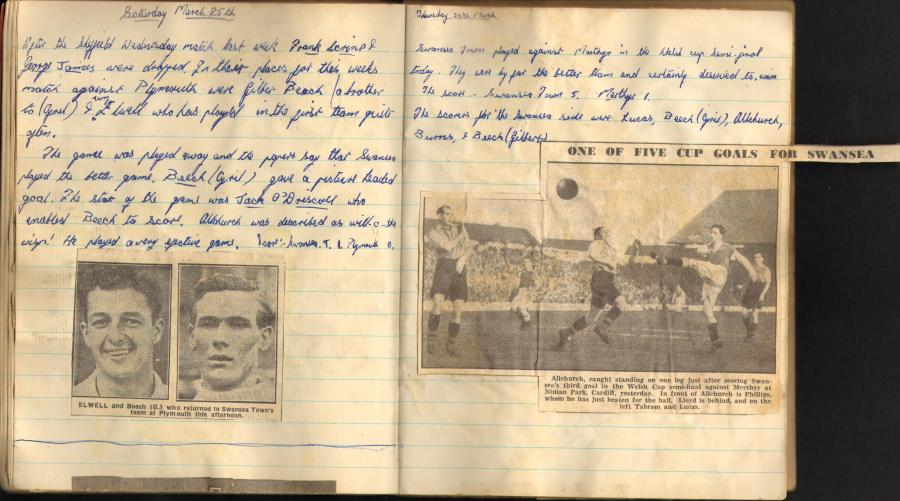 Saturday March 25th
After the Sheffield Wednesday match last week Frank Scrine &
George James were dropped. In their places for this weeks
match against Plymouth were Gilber Beech (a brother
to (Cyril) & Elwell who has played in the first team quite
often.
The game was played away and the papers say that Swansea
played the better game, Beech (Cyril) gave a picture headed
goal. The star of the game was Jack O'Driscoll who
enabled Beech to score. Allchurch was described as will-o-the
wisp! He played a very effective game. Score:- Swansea. T. 1. Plymouth 0.
ELWELL and Beech (G.) who returned to Swansea Town's
team at Plymouth this afternoon.
Thursday 30th March
Swansea Town played against Merthyr in the Welsh cup semi-final
today. They were by far the better team and certainly deserved to win
The score - Swansea Town 5. Merthyr 1.
The scorers for the Swansea side were Lucas, Beech (Cyril), Allchurch,
Burns, & Beech (Gilbert)
ONE OF FIVE CUP GOALS FOR SWANSEA
Allchurch, caught standing on one leg just after scoring Swan-
sea's third goal in the Welsh Cup semi-final against Merthyr at
Ninian Park, Cardiff, yesterday. In front of Allchurch is Phillips,
whom he has just beaten for the ball. Lloyd is behind, and on the
left Tabram and Lucas.